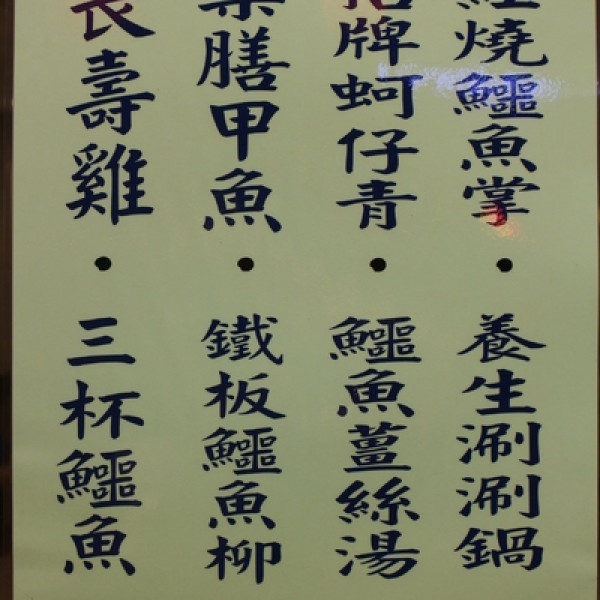 紅燒鱷魚掌・養生涮涮鍋
招牌蚵仔青・鱷魚薑絲湯
藥膳甲魚・鐵板鱷魚柳
長壽雞・三杯鱷魚